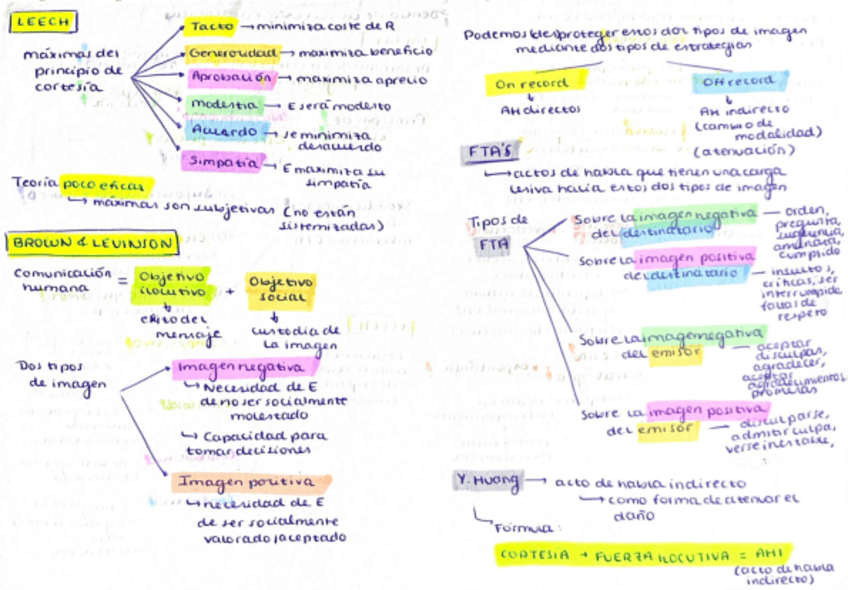 LEECH
máximas del
principio de
cortesía
Tacto → minimiza coste de R
Generosidad → maximiza beneficio
Aprobación → maximiza aprecio
modestia → E será modesto
Acuerdo → se minimiza
desacuerdo
Simpatía → E maximiza su
simpatía
Teoría poco eficaz
↳ máximas son subjetivas (no están
sistemizadas)
BROWN & LEVINSON
Comunicación
humana
= Objetivo
ilocutivo
+ Objetivo
social
↓
éxito del
mensaje
↓
custodia de
la imagen
Dos tipos
de imagen
Imagen negativa
↳ Necesidad de E
de no ser socialmente
molestado
↳ Capacidad para
tomar decisiones
Imagen positiva
↳ necesidad de E
de ser socialmente
valorado/aceptado
Podemos (des)proteger estos dos tipos de imagen
mediante dos tipos de estrategias
On record
↓
AH directos
Off record
↓
AH indirecto
(cambio de
modalidad)
(atenuación)
FTA'S
↳ actos de habla que tienen una carga
lesiva hacia estos dos tipos de imagen
Tipos de
FTA
Sobre la imagen negativa
del destinatario
— orden,
pregunta,
sugerencia,
amenaza,
cumplido
Sobre la imagen positiva
del destinatario
— insultos,
críticas, ser
interrumpido
faltas de
respeto
Sobre la imagen negativa
del emisor
— aceptar
disculpas,
agradecer,
aceptar
agradecimientos,
promesas
Sobre la imagen positiva
del emisor
— disculparse,
admitir culpa,
verse inestable,
Y. Huang → acto de habla indirecto
↳ como forma de atenuar el
daño
↳ Fórmula:
CORTESÍA + FUERZA ILOCUTIVA = AHI
(acto de habla
indirecto)